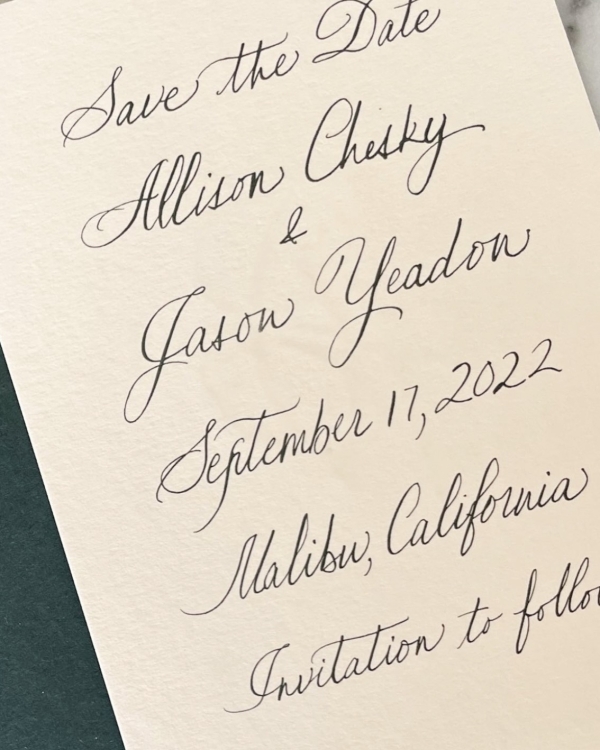 Save the Date
Allison Chesky
&
Jason Yeadon
September 17, 2022
Malibu, California
Invitation to follo